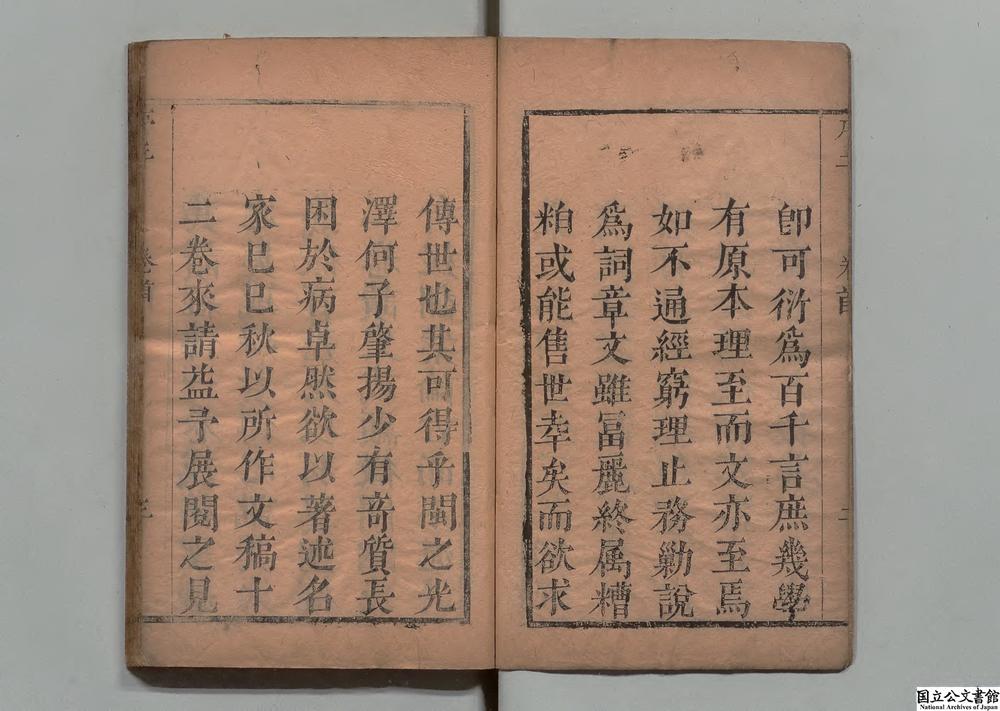 即可衍爲百千言庶幾學
有原本理至而文亦至焉
如不通經窮理止務勦說
爲詞章文雖富麗終属糟
粕或能售世幸矣而欲求
卷首
二
傳世也其可得乎閩之光
澤何子肇揚少有竒質長
困於病卓然欲以著述名
家巳巳秋以所作文稿十
二卷來請益予展閱之見
卷首
三
国立公文書館
National Archives of Japan